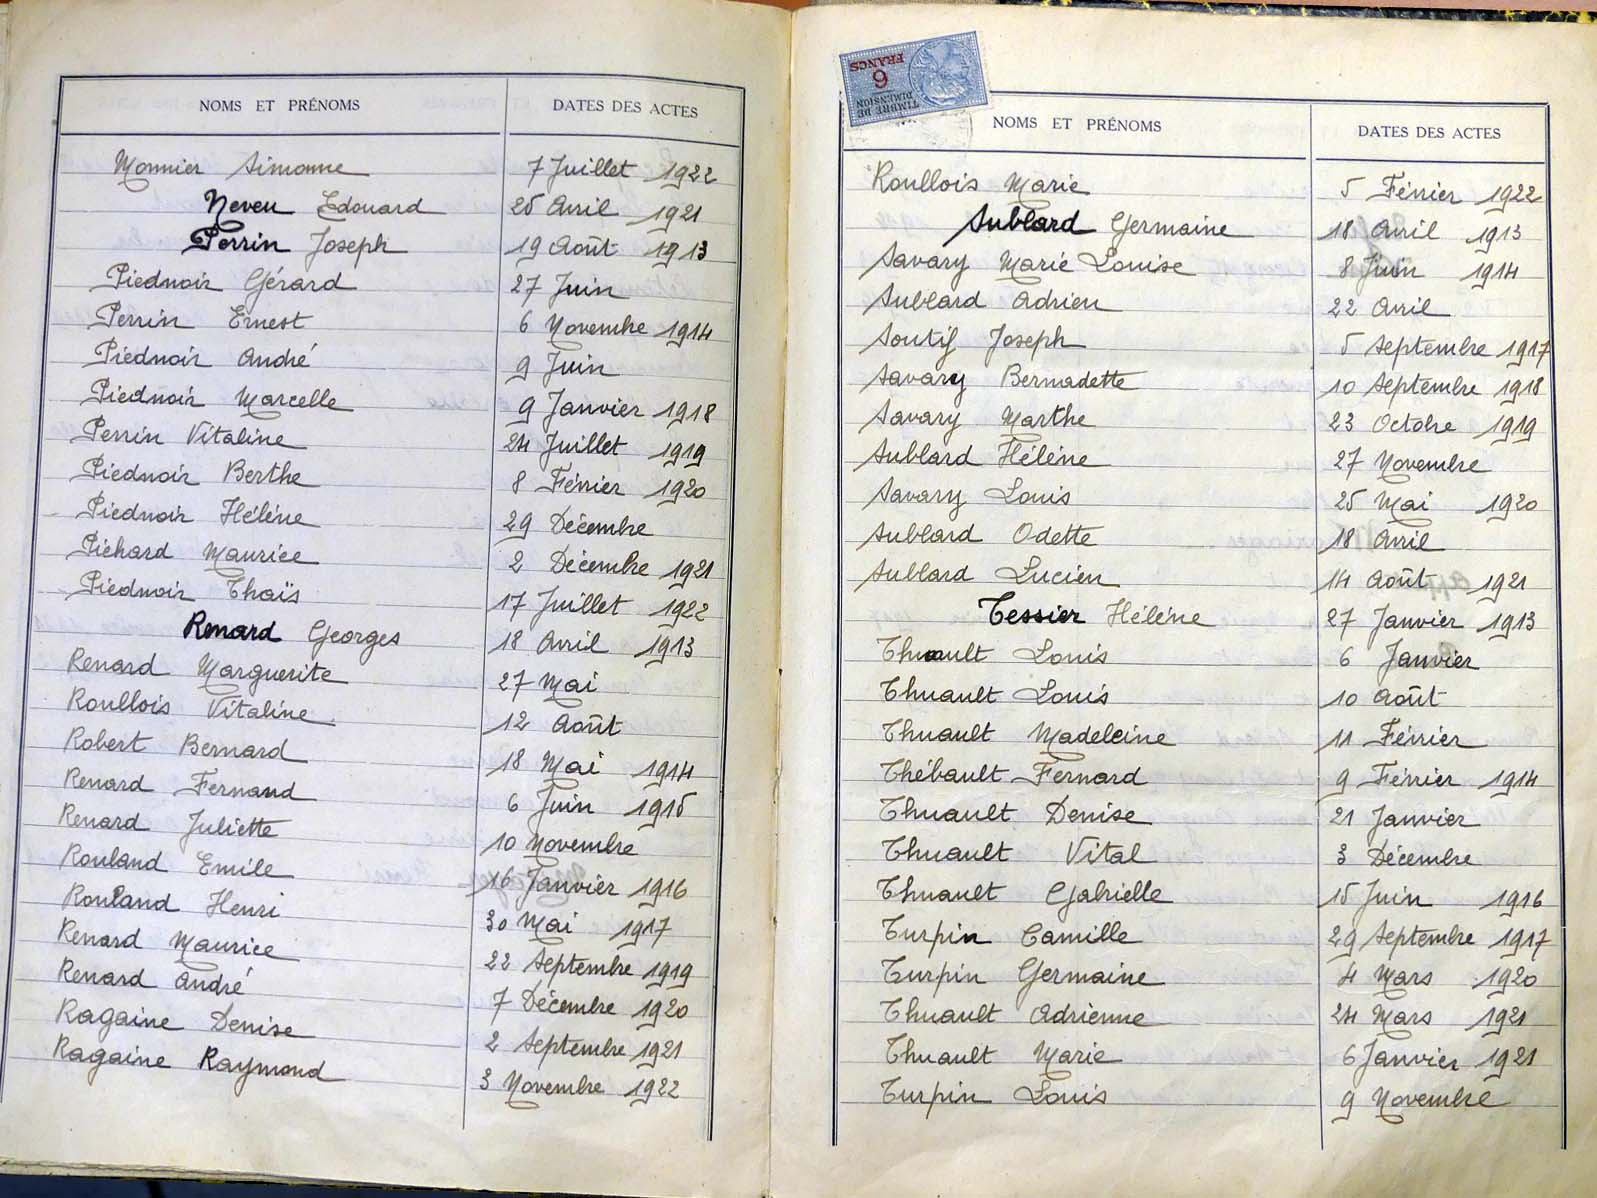 NOMS ET PRÉNOMS DATES DES ACTES
Monnier Simonne 7 Juillet 1922
Neveu Edouard 25 Avril 1921
Perrin Joseph 19 Août 1913
Piednoir Gérard 27 Juin
Perrin Ernest 6 Novembre 1914
Piednoir André 9 Juin
Piednoir Marcelle 9 Janvier 1918
Perrin Vitaline 24 Juillet 1919
Piednoir Berthe 8 Février 1920
Piednoir Hélène 29 Décembre
Pichard Maurice 2 Décembre 1921
Piednoir Thaïs 17 Juillet 1922
Renard Georges 18 Avril 1913
Renard Marguerite 27 Mai
Roullois Vitaline 12 Août
Robert Bernard 18 Mai 1914
Renard Fernand 6 Juin 1915
Renard Juliette 10 Novembre
Rouland Emile 16 Janvier 1916
Rouland Henri 30 Mai 1917
Renard Maurice 22 Septembre 1919
Renard André 7 Décembre 1920
Ragaine Denise 2 Septembre 1921
Ragaine Raymond 3 Novembre 1922
TIMBRE DE
DIMENSION
6
FRANCS
NOMS ET PRÉNOMS DATES DES ACTES
Roullois Marie 5 Février 1922
Sublard Germaine 18 Avril 1913
Savary Marie Louise 8 Juin 1914
Sublard Adrien 22 Avril
Soutif Joseph 5 Septembre 1917
Savary Bernadette 10 Septembre 1918
Savary Marthe 23 Octobre 1919
Sublard Hélène 27 Novembre
Savary Louis 25 Mai 1920
Sublard Odette 18 Avril
Sublard Lucien 14 Août 1921
Tessier Hélène 27 Janvier 1913
Thuault Louis 6 Janvier
Thuault Louis 10 Août
Thuault Madeleine 11 Février
Thébault Fernard 9 Février 1914
Thuault Denise 21 Janvier
Thuault Vital 3 Décembre
Thuault Gabrielle 15 Juin 1916
Turpin Camille 29 Septembre 1917
Turpin Germaine 4 Mars 1920
Thuault Adrienne 24 Mars 1921
Thuault Marie 6 Janvier 1921
Turpin Louis 9 Novembre